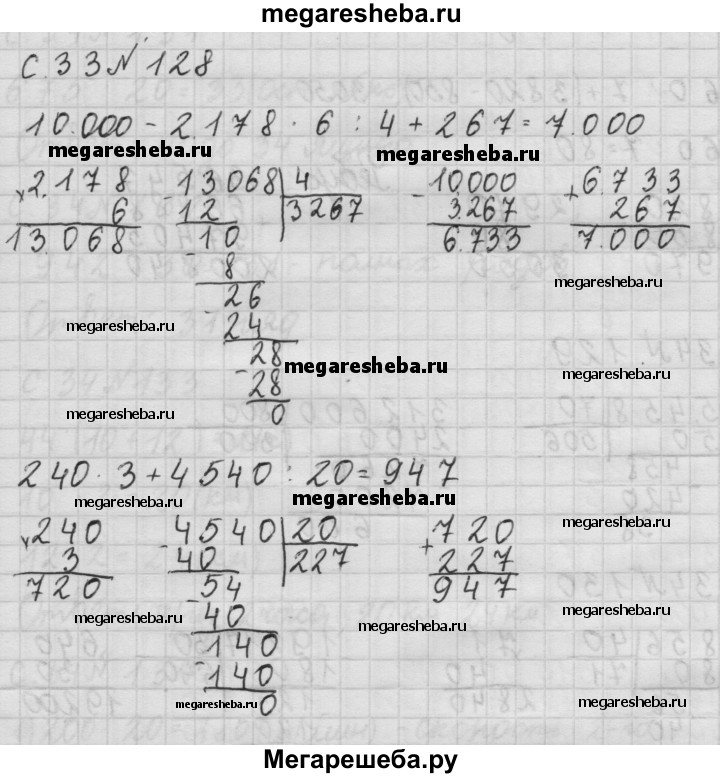 megaresheba.ru
с. 33 № 128
10.000 - 2.178 · 6 : 4 + 267 = 7.000
megaresheba.ru megaresheba.ru
× 2.178 - 13068 | 4 - 10.000 + 6733
6 12 3267 3.267 267
13.068 - 10 6.733 7.000
8 megaresheba.ru
- 26
megaresheba.ru 24
- 28 megaresheba.ru megaresheba.ru
28
megaresheba.ru 0
240 · 3 + 4540 : 20 = 947
megaresheba.ru megaresheba.ru
× 240 - 4540 | 20 + 720 megaresheba.ru
3 40 227 227
720 - 54 947
40 megaresheba.ru megaresheba.ru
- 140
- 140
megaresheba.ru 0 megaresheba.ru
Мегарешеба.ру